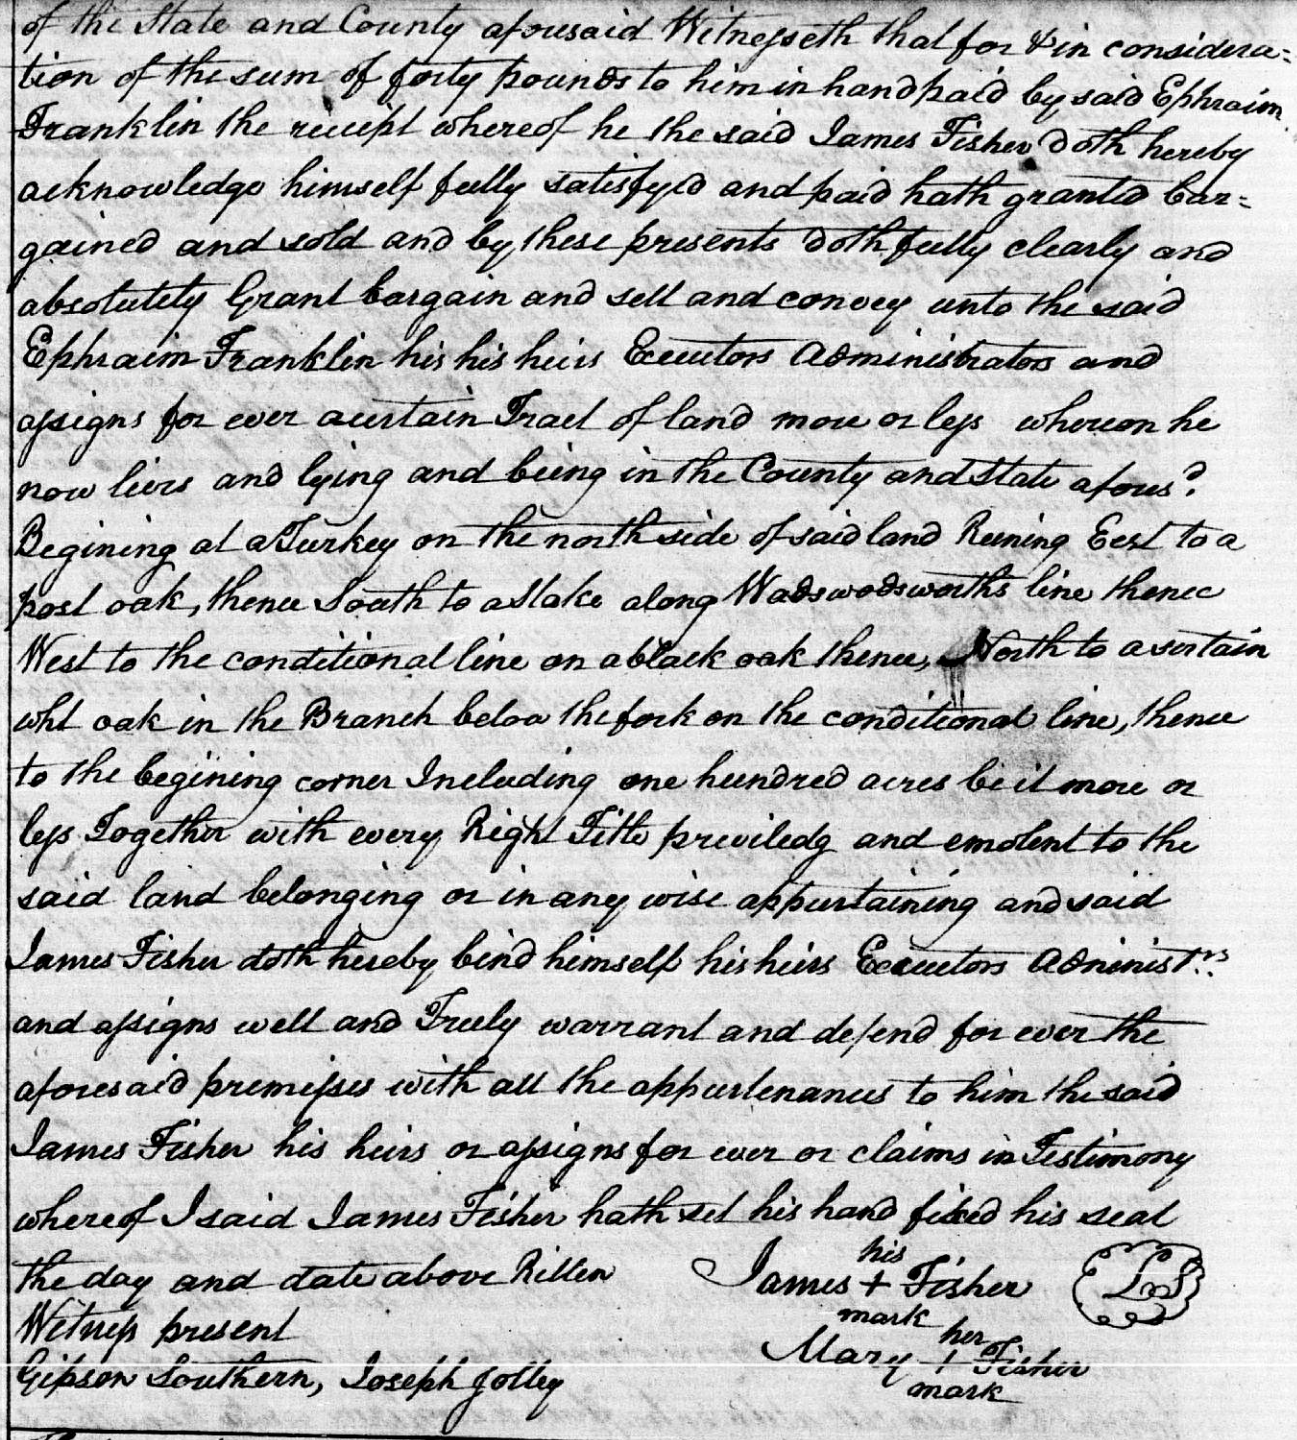 of the State and County aforesaid Witnesseth that for & in considera=
tion of the sum of forty pounds to him in hand paid by said Ephraim
Franklin the reicept whereof he the said James Fisher doth hereby
acknowledge himself fully satisfyed and paid hath granted bar=
gained and sold and by these presents doth fully clearly and
absolutely Grant bargain and sell and convey unto the said
Ephraim Franklin his his heirs Executors Administrators and
assigns for ever a certain Tract of land more or less whereon he
now livs and lying and being in the County and State afores.d
Begining at a Turkey on the north side of said land Runing East to a
post oak, thence South to a Stake along Wadswodsworths line thence
West to the conditional line on a black oak thence, North to a certain
wht oak in the Branch below the fork on the conditional line, thence
to the begining corner Including one hundred acres be it more or
less Together with every Right Title previledg and emolent to the
said land belonging or in any wise appurtaining and said
James Fisher doth hereby bind himself his heirs Executors Administ.rs
and assigns well and Truly warrant and defend for ever the
aforesaid premisses with all the appurtenances to him the said
James Fisher his heirs or assigns for ever or claims in Testimony
whereof I said James Fisher hath set his hand fixed his seal
the day and date above Ritten
his
James + Fisher LS
mark
Witness present
her
Mary + Fisher
mark
Gipson Southern, Joseph Jolley